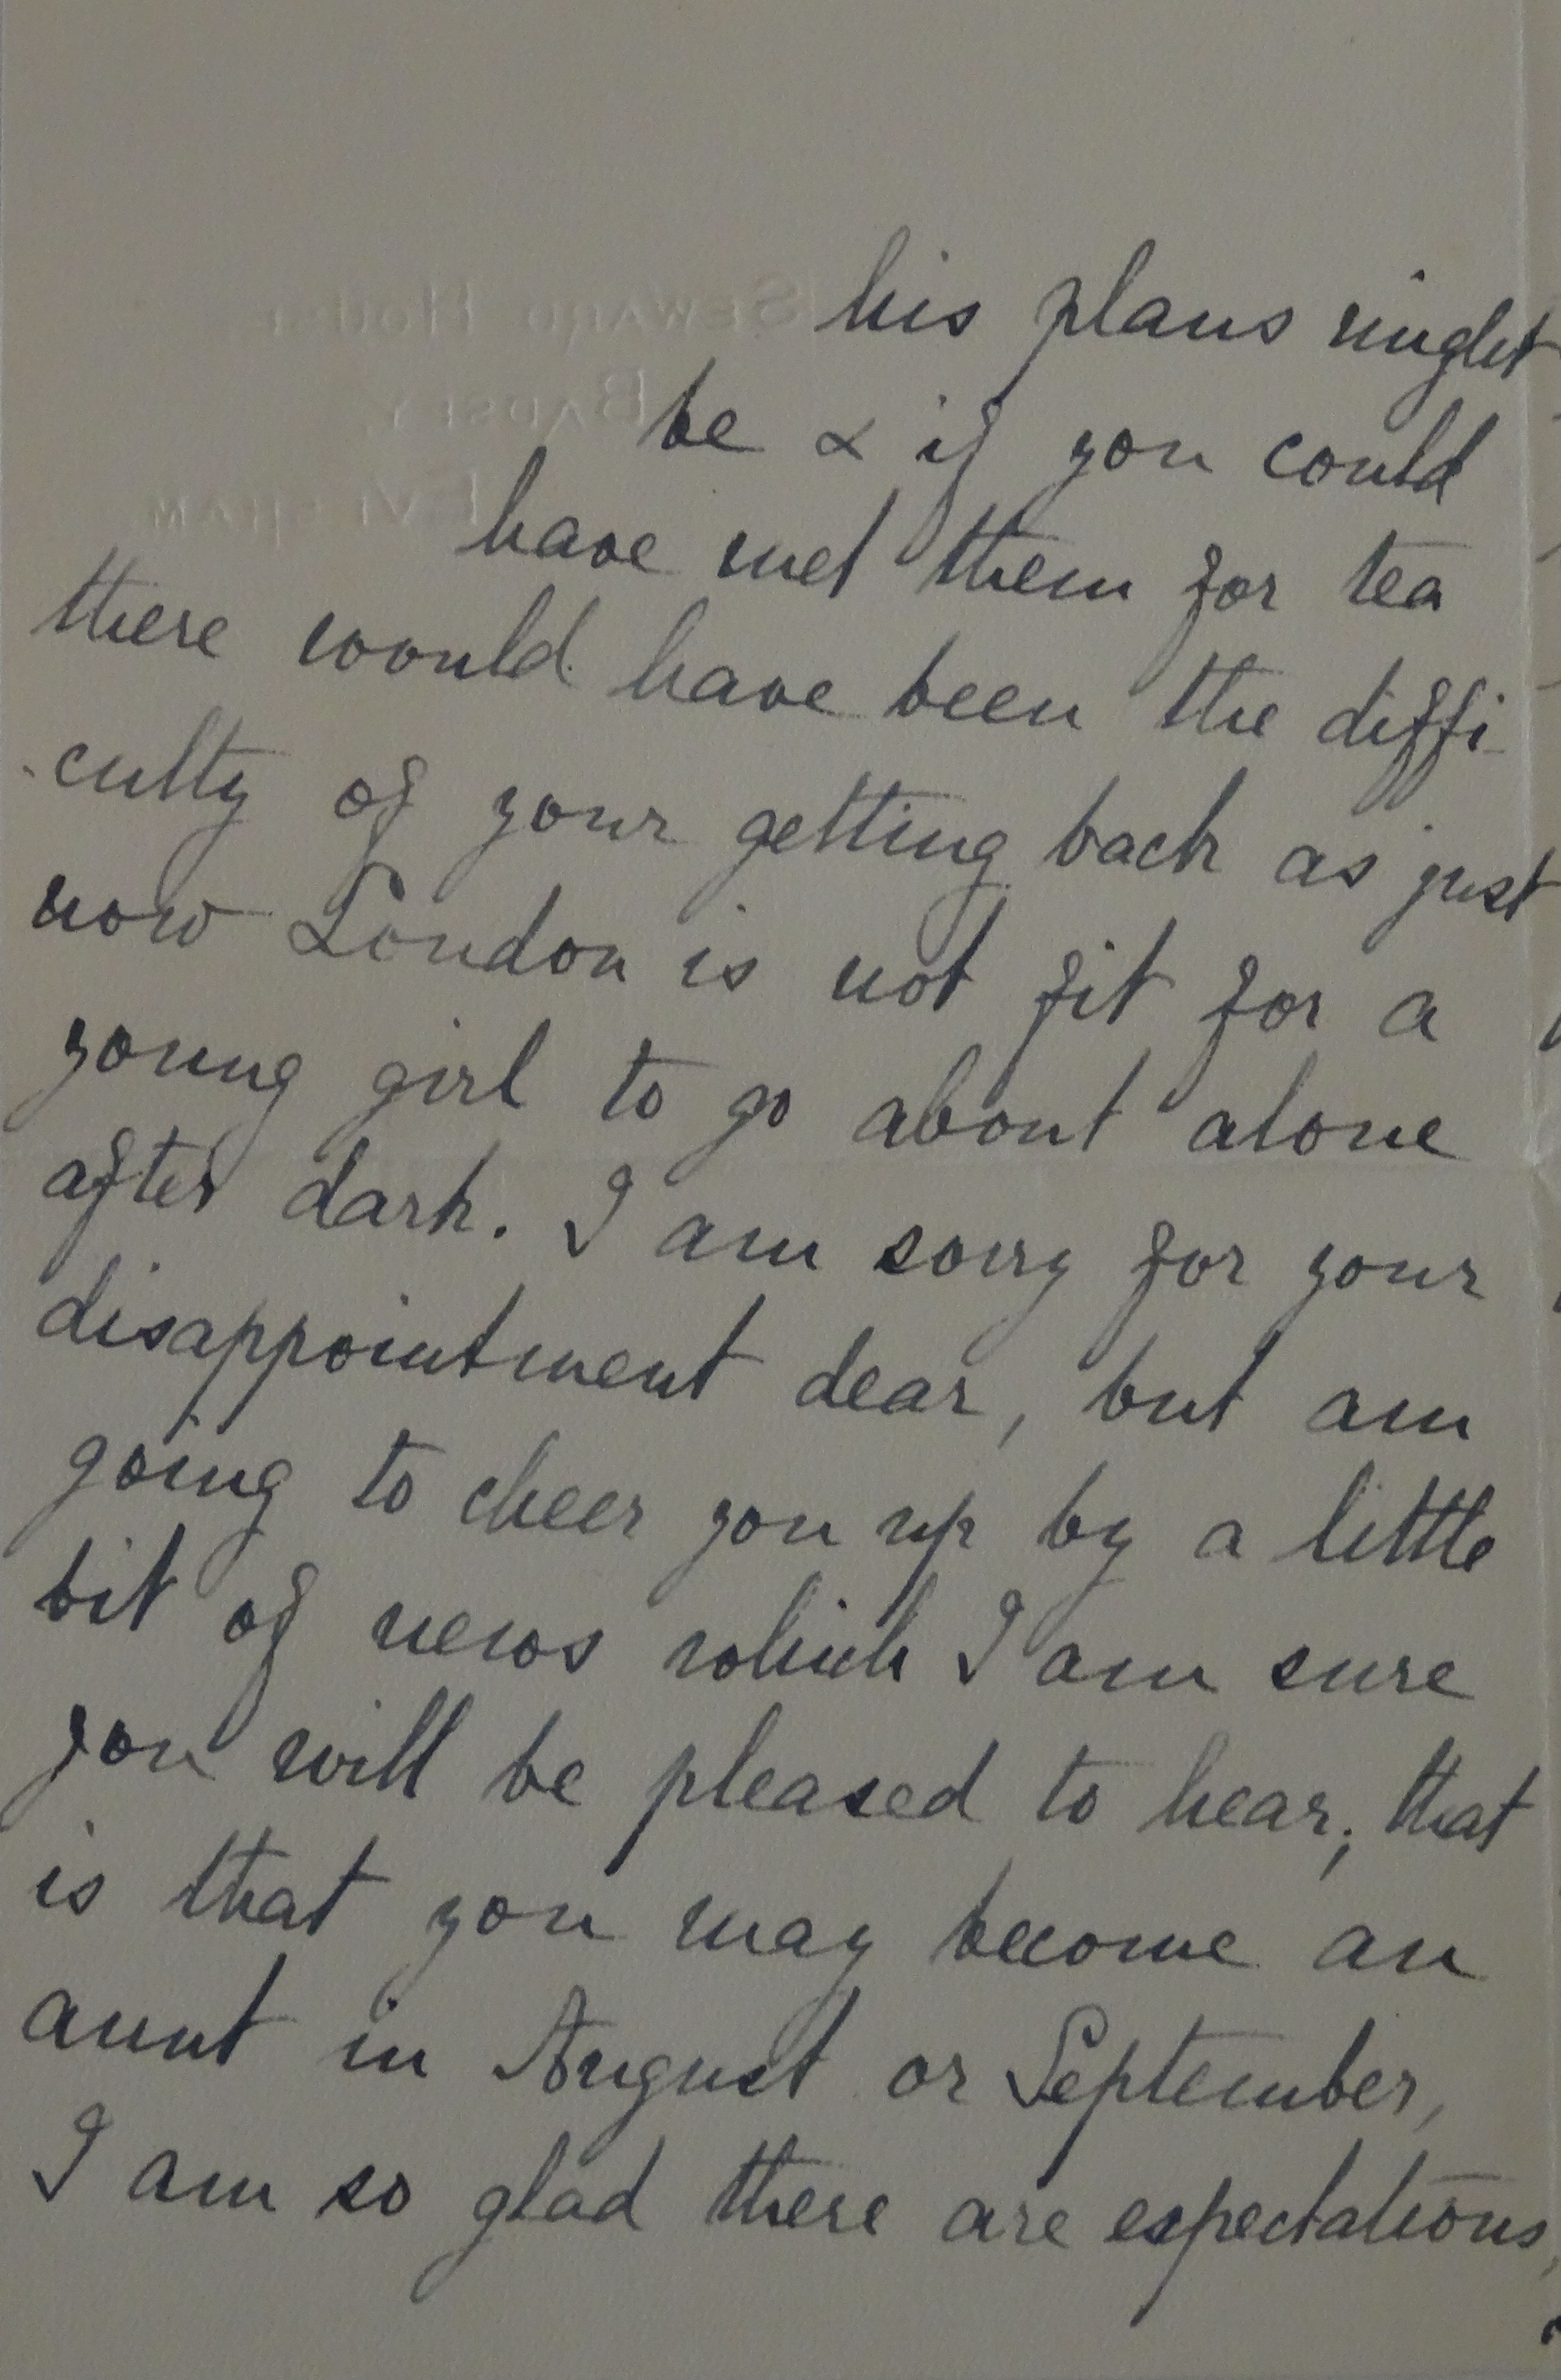 his plans might
be & if you could
have met them for tea
there would have been the diffi-
-culty of your getting back as just
now London is not fit for a
young girl to go about alone
after dark. I am sorry for your
disappointment dear, but am
going to cheer you up by a little
bit of news which I am sure
you will be pleased to hear; that
is that you may become an
aunt in August or September,
I am so glad there are expectations,
Seward House
Badsey
Evesham